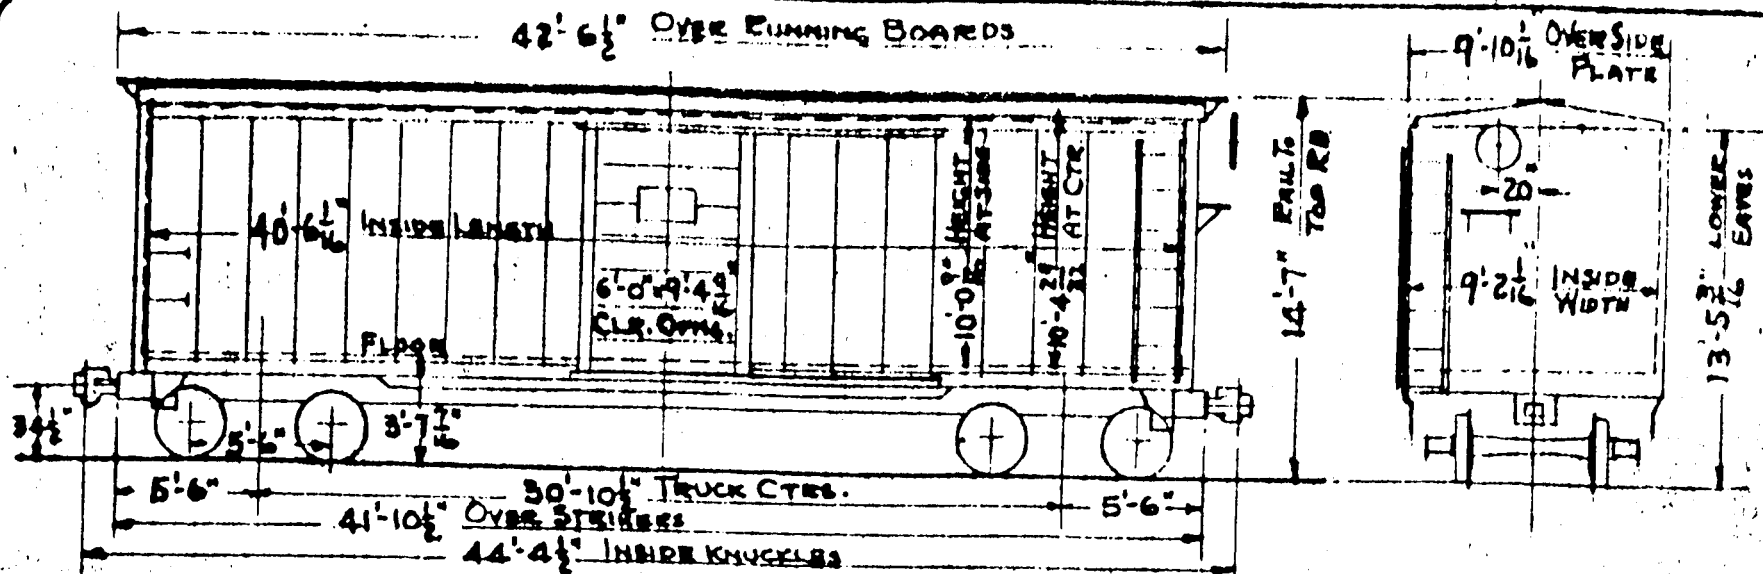 42'-6½" OVER RUNNING BOARDS
9'-10 1/16 OVER SIDE
PLATE
40'-6 1/16" INSIDE LENGTH
6'-0" x 9'-4
CLR. OPNG.
10'-0 9/16" HEIGHT
AT SIDE
10'-4 29/32" HEIGHT
AT CTR.
14'-7" RAIL TO
TOP RB
20"
9'-2 1/16" INSIDE
WIDTH
13'-5 3/16" LOWER
EAVES
FLOOR
34½"
5'-6"
3'-7 7/16"
5'-6"
30'-10½" TRUCK CTRS.
5'-6"
41'-10½" OVER STRIKERS
44'-4½" INSIDE KNUCKLES